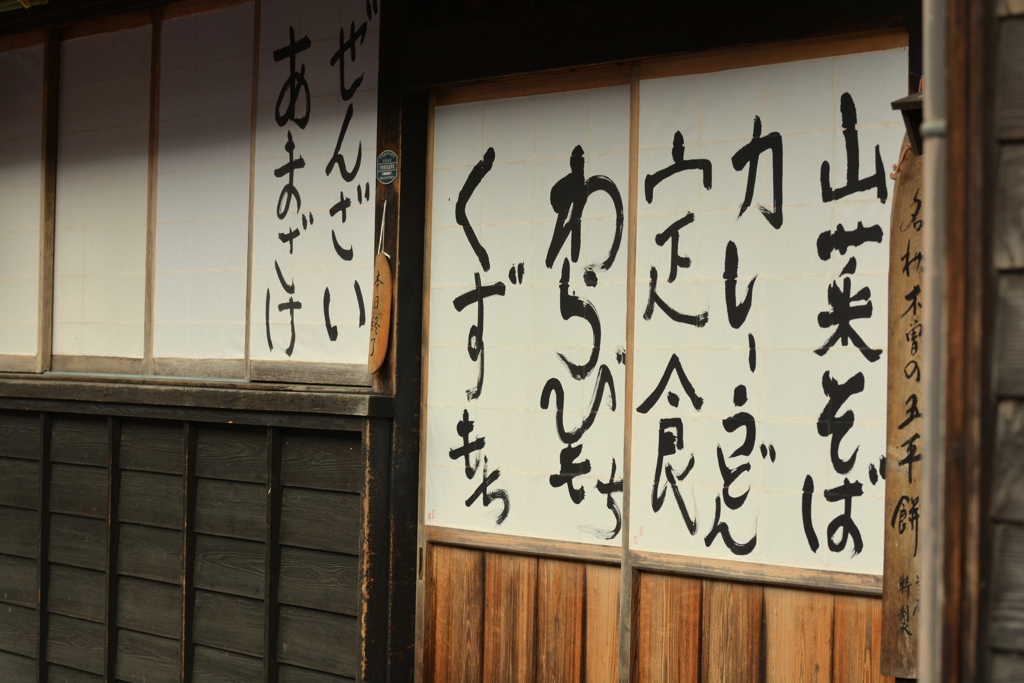 名物木曽の五平餅
特製
山菜そば
カレーうどん
定食
わらびもち
くずもち
本日終了
ぜんざい
あまざけ